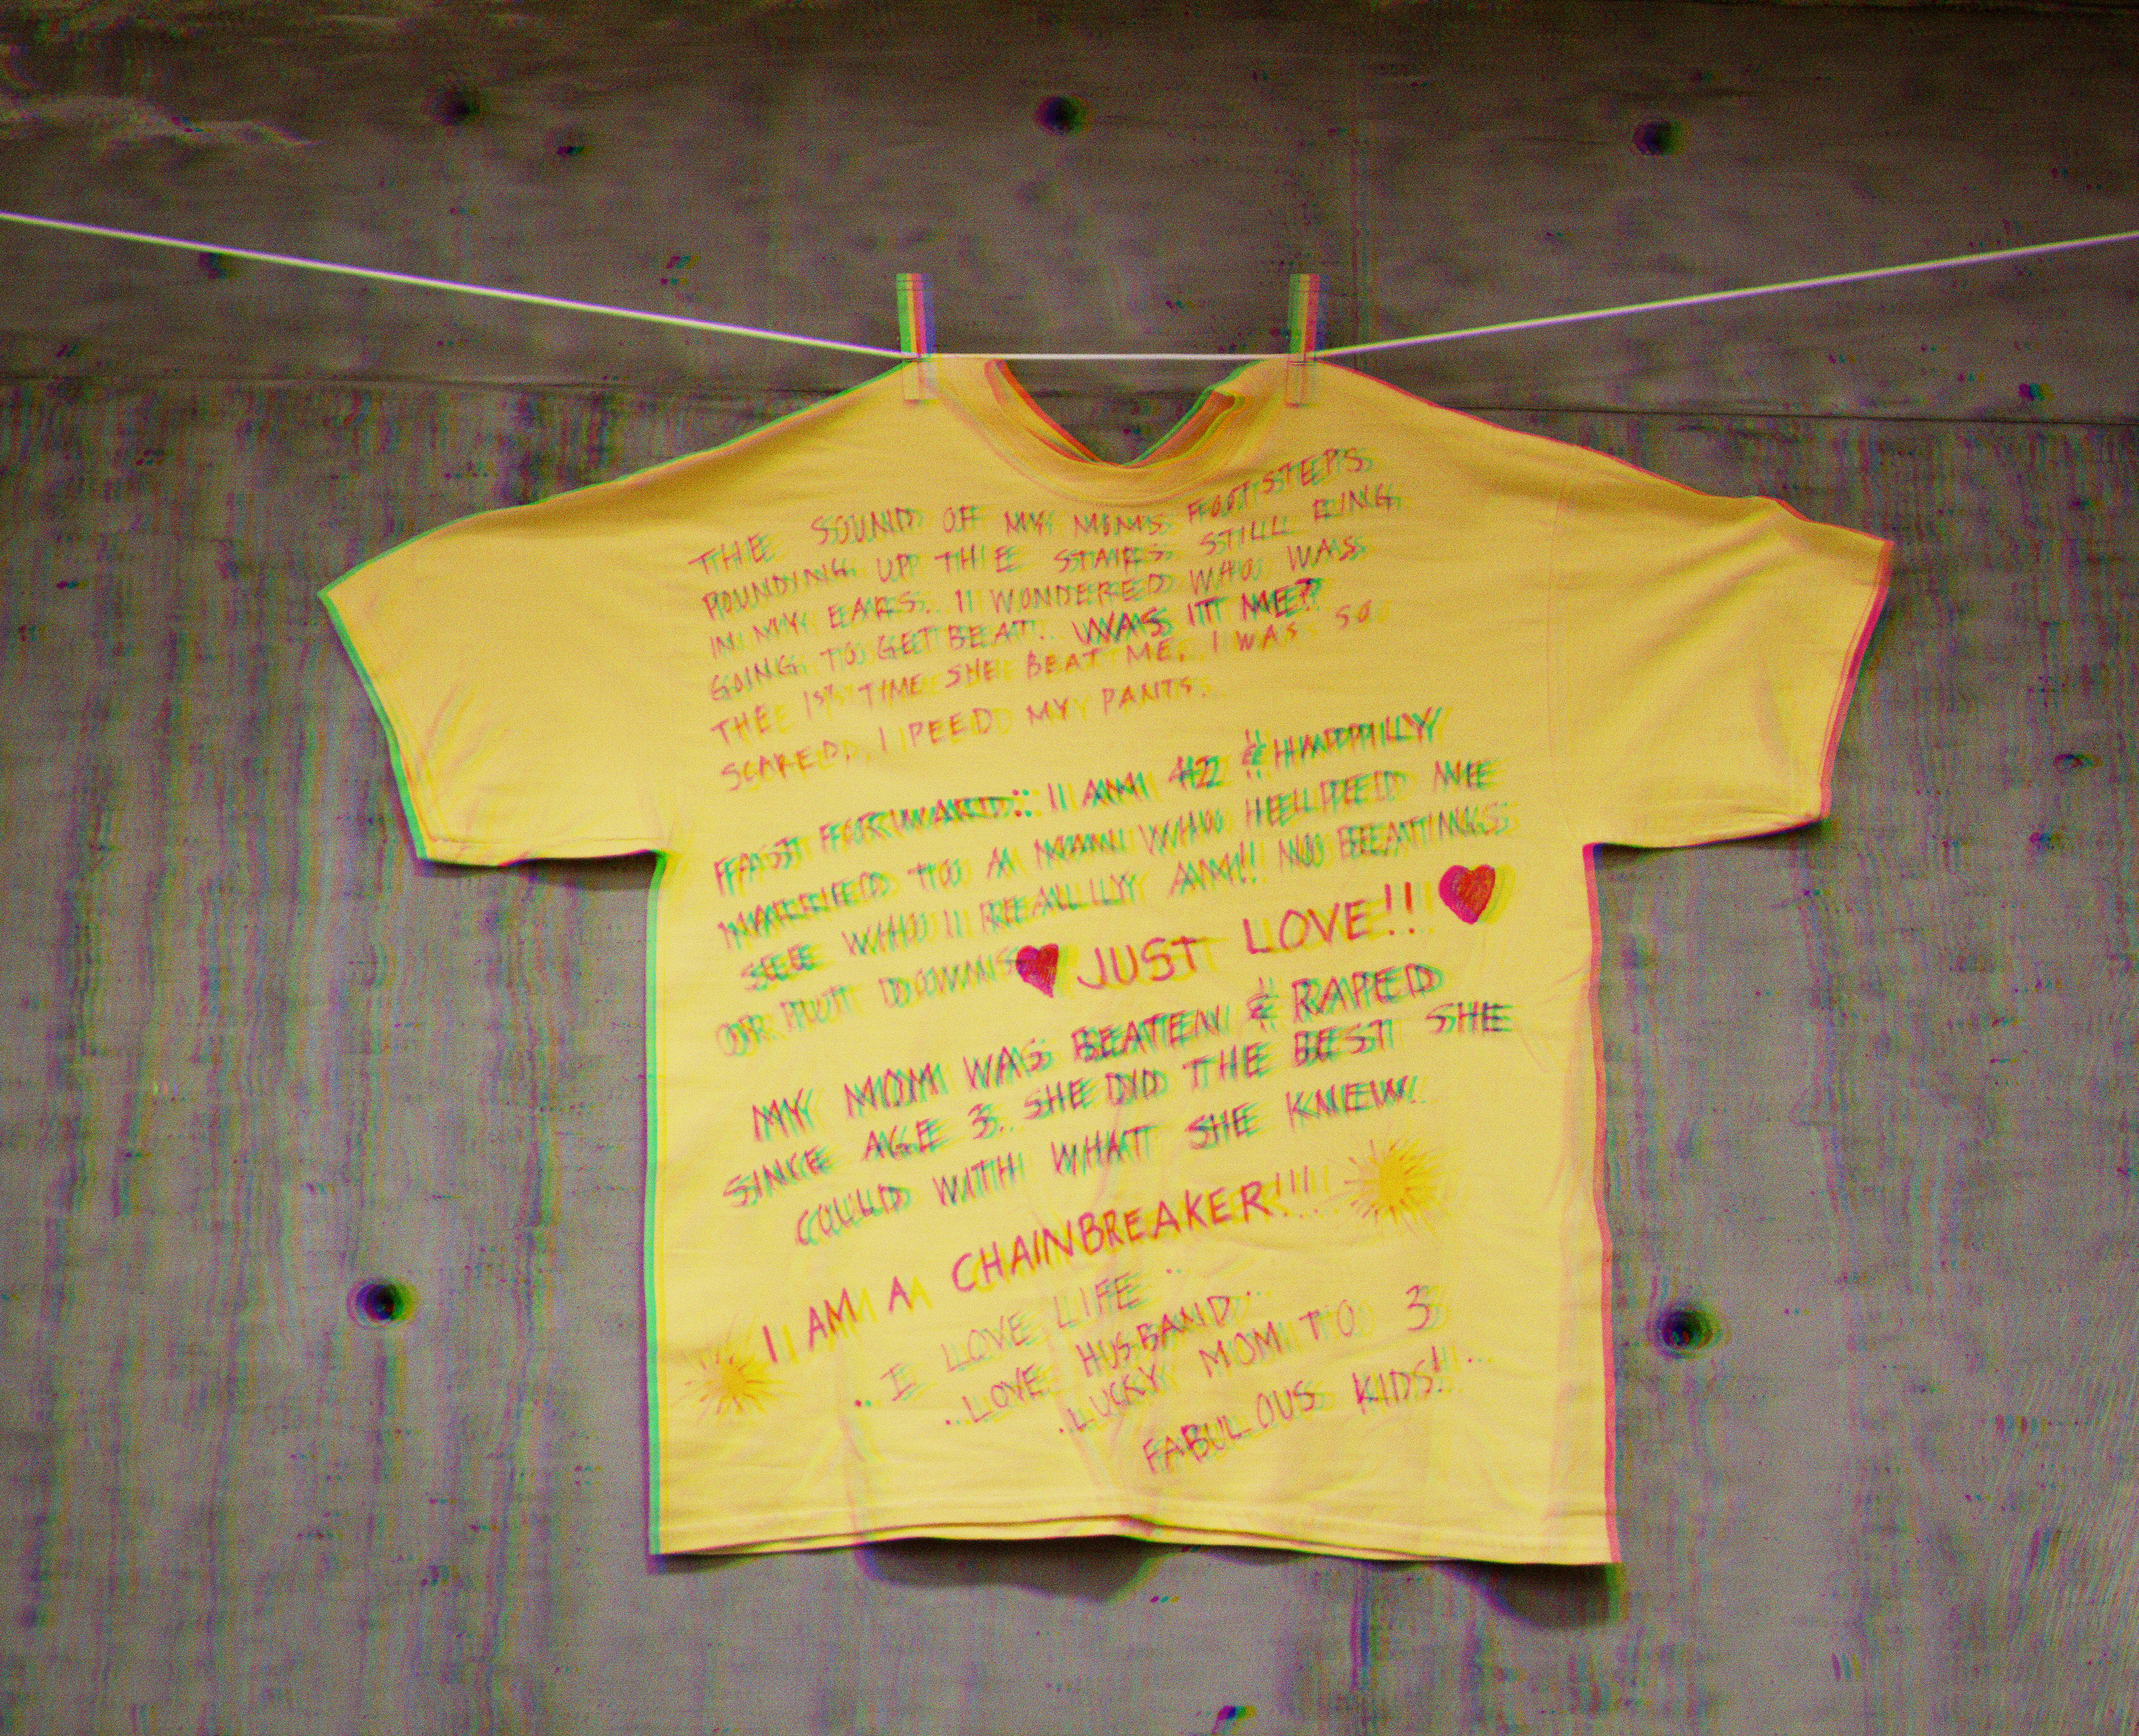 THE SOUND OF MY MOM'S FOOTSTEPS
POUNDING UP THE STAIRS STILL RING
IN MY EARS. I WONDERED WHO WAS
GOING TO GET BEAT. WAS IT ME?
THE 1ST TIME SHE BEAT ME, I WAS SO
SCARED, I PEED MY PANTS.
FAST FORWARD: I AM 42 & HAPPILY
MARRIED TO A MAN WHO HELPED ME
SEE WHO I REALLY AM! NO BEATINGS
OR PUT DOWNS JUST LOVE!!
MY MOM WAS BEATEN & RAPED
SINCE AGE 3. SHE DID THE BEST SHE
COULD WITH WHAT SHE KNEW.
I AM A CHAINBREAKER!!!
..I LOVE LIFE..
..LOVE HUSBAND..
.LUCKY MOM TO 3
FABULOUS KIDS!...